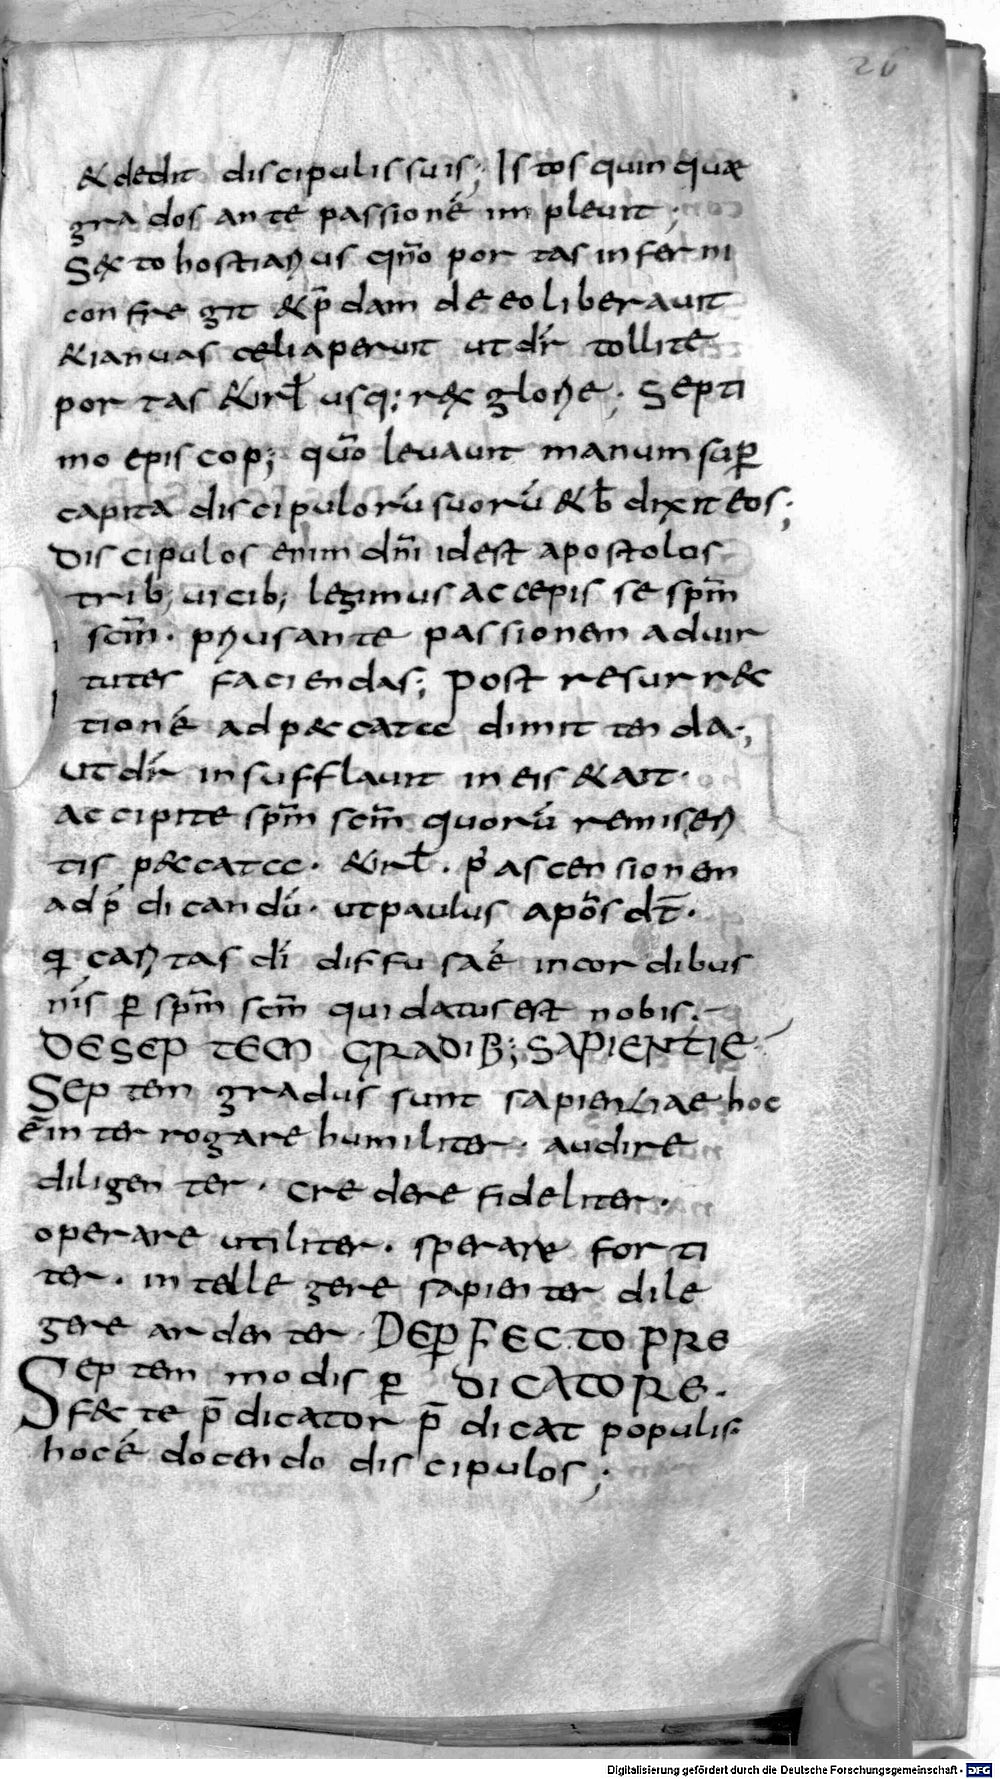 26
& dedit discipulis suis; Istos quinquae
grados ante passioné impleuit;
S&to hostiarius qn̄o portas inferni
confregit &p̄dam de eo liberauit
& ianuas celi aperuit ut dr̄ tollite
portas &rl̄ usq; rex glorie; Septi
mo episcop; qn̄o leuauit manum sup̱
capita discipuloru̅ suoru̅ & b̄ dixit eos;
Discipulos enim dn̄i id est apostolos
trib; uicib; legimus accepisse sp̄m
sc̄m. prius ante passionem ad uir
tutes faciendas; post resurrec
tioné ad peccata dimittenda;
ut dr̄ insufflauit in eis & ait.
accipite sp̄m sc̄m quoru̅ remiseri
tis peccata. &rl̄. p̓ ascensionem
ad p̄dicandu̅. ut paulus apo̅s dt̄.
q caritas dī diffusa é in cordibus
nr̄is ꝑ sp̄m sc̄m qui datus est nobis.
DE SEPTEM GRADIB; SAPIENTIE
Septem gradus sunt sapientiae hoc
ē interrogare humiliter. audire
diligenter. credere fideliter.
operare utiliter. sperare forti
ter. intellegere sapienter dile
gere ardenter. DE PERFECTO PRE
Septem modis ꝑ DICATORE.
fecte p̄dicator p̄dicat populis.
hoc é docendo discipulos;
Digitalisierung gefördert durch die Deutsche Forschungsgemeinschaft - DFG